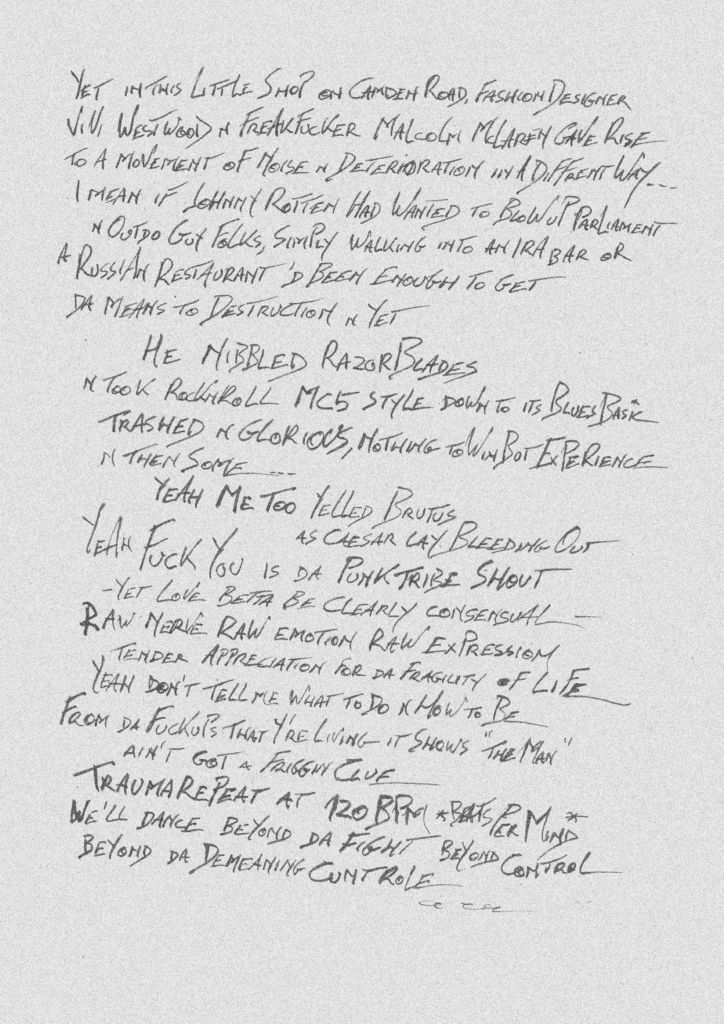 Yet in this Little Shop on Camden Road, Fashion Designer
Vivi Westwood n Freakfucker Malcolm McLaren Gave Rise
to a Movement of Noise n Deterioration in a Diffrent Way...
I mean if Johnny Rotten Had Wanted to Blow up Parliament
n Outdo Guy Folks, Simply walking into an IRA bar or
a Russian Restaurant 'd Been Enough to get
da means to Destruction n Yet
He Nibbled RazorBlades
n took Rock'nRoll MC5 style down to its Blues Basic
Trashed n Glorious, nothing to Win Bot Experience
n then Some...
Yeah Me Too Yelled Brutus
as Caesar lay Bleeding Out
Yeah Fuck You is da Punktribe Shout
-Yet Love Betta Be Clearly consensual -
Raw Nerve Raw emotion Raw Expression
Tender Appreciation for da Fragility of Life
Yeah don't tell me what to do n How to Be
From da Fuckups that Y're Living it shows "The Man"
ain't got a Friggin Clue
TraumaRepeat at 120 BPM *Beats Per Mind*
We'll dance Beyond da Fight Beyond Control
Beyond da Demeaning Cuntrole